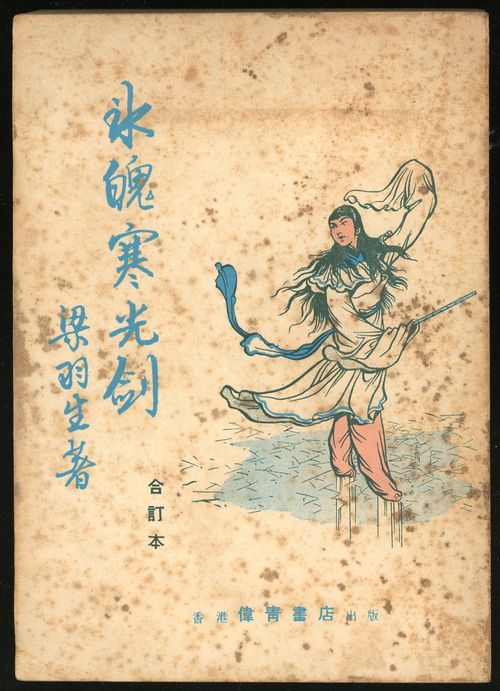 冰魄寒光劍
梁羽生著
合訂本
香港 偉青書店 出版